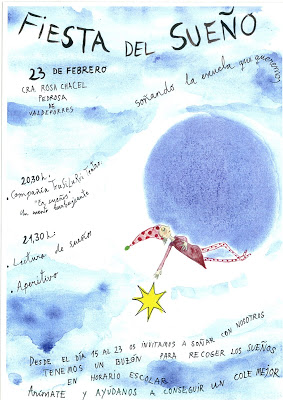 FIESTA DEL SUEÑO
23 DE FEBRERO
soñando la escuela que queremos
CRA. ROSA CHACEL
PEDROSA
DE
VALDEPORRES
20,30 h.:
• Compañía Teatro.
"En sueños"
Un menú
21,30 h:
• Lectura de sueños
• Aperitivo
DESDE EL DÍA 15 AL 23 OS INVITAMOS A SOÑAR CON NOSOTROS
TENEMOS UN BUZÓN PARA RECOGER LOS SUEÑOS
EN HORARIO ESCOLAR
ANÍMATE Y AYÚDANOS A CONSEGUIR UN COLE MEJOR